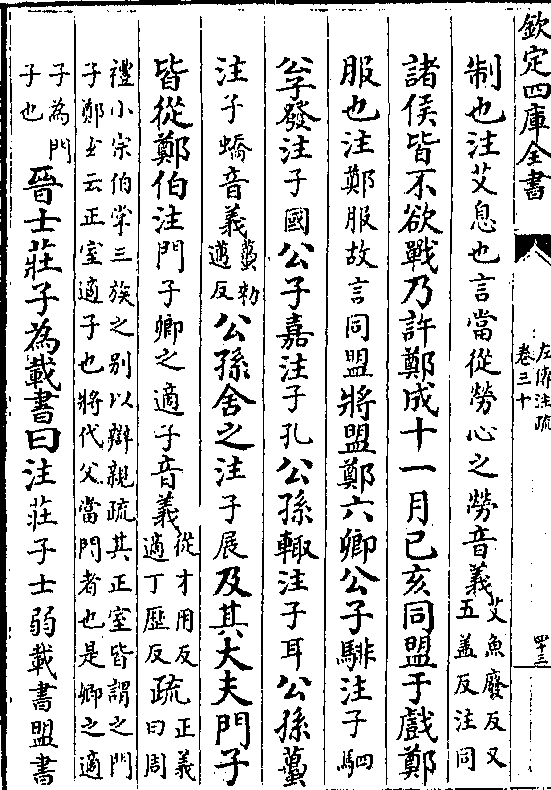 欽定四庫全書
左傳注疏
卷三十
四十三
制也注艾息也言當從勞心之勞音義艾魚廢反又
五蓋反注同
諸侯皆不欲戰乃許鄭成十一月己亥同盟于戲鄭
服也注鄭服故言同盟將盟鄭六卿公子騑注子駟
公子發注子國公子嘉注子孔公孫輒注子耳公孫蠆
注子蟜音義蠆勑
邁反公孫舍之注子展及其大夫門子
皆從鄭伯注門子卿之適子音義從才用反
適丁歷反疏正義
曰周
禮小宗伯掌三族之別以辯親疏其正室皆謂之門
子鄭𤣥云正室適子也將代父當門者也是卿之適
子為門
子也晉士莊子為載書曰注莊子士弱載書盟書